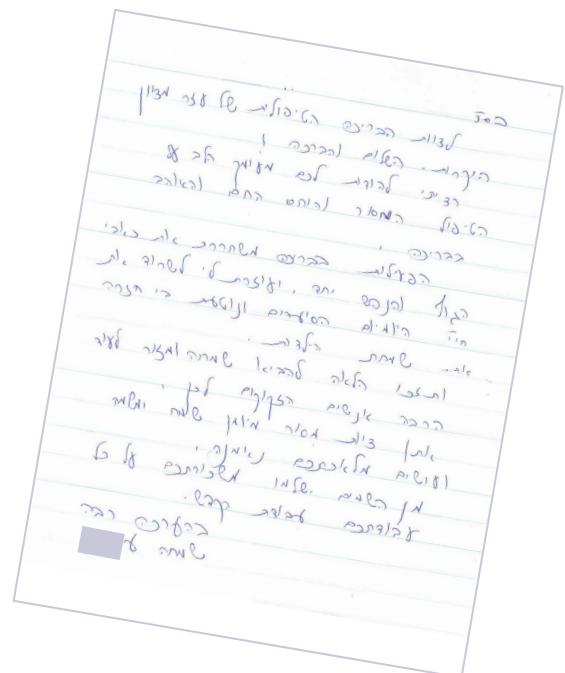 בסד
לצוות הבריכה הטיפולית של עזר מציון
היקרות. השלום והברכה !
רציתי להודות לכם מעומק הלב על
הטיפול המסור והיחס החם והאוהב
בבריכה ,
הפעילות בבריכה משחררת את כאבי
הגוף והנפש יחד . ועוזרת לי לשרוד את
חיי היומיום הסוערים ונוטעת בי חזרה
את שמחת הילדות .
ותזכו הלאה להביא שמחה ומזור לעוד
הרבה אנשים הזקוקים לכך ,
אתן צוות מסור מיומן שמח ומשמח
ועושים מלאכתכם נאימנה ,
מן השמים ישלמו משכורתכם על כל
עבודתכם עבודת קודש .
בהערכה רבה
שמחה ע